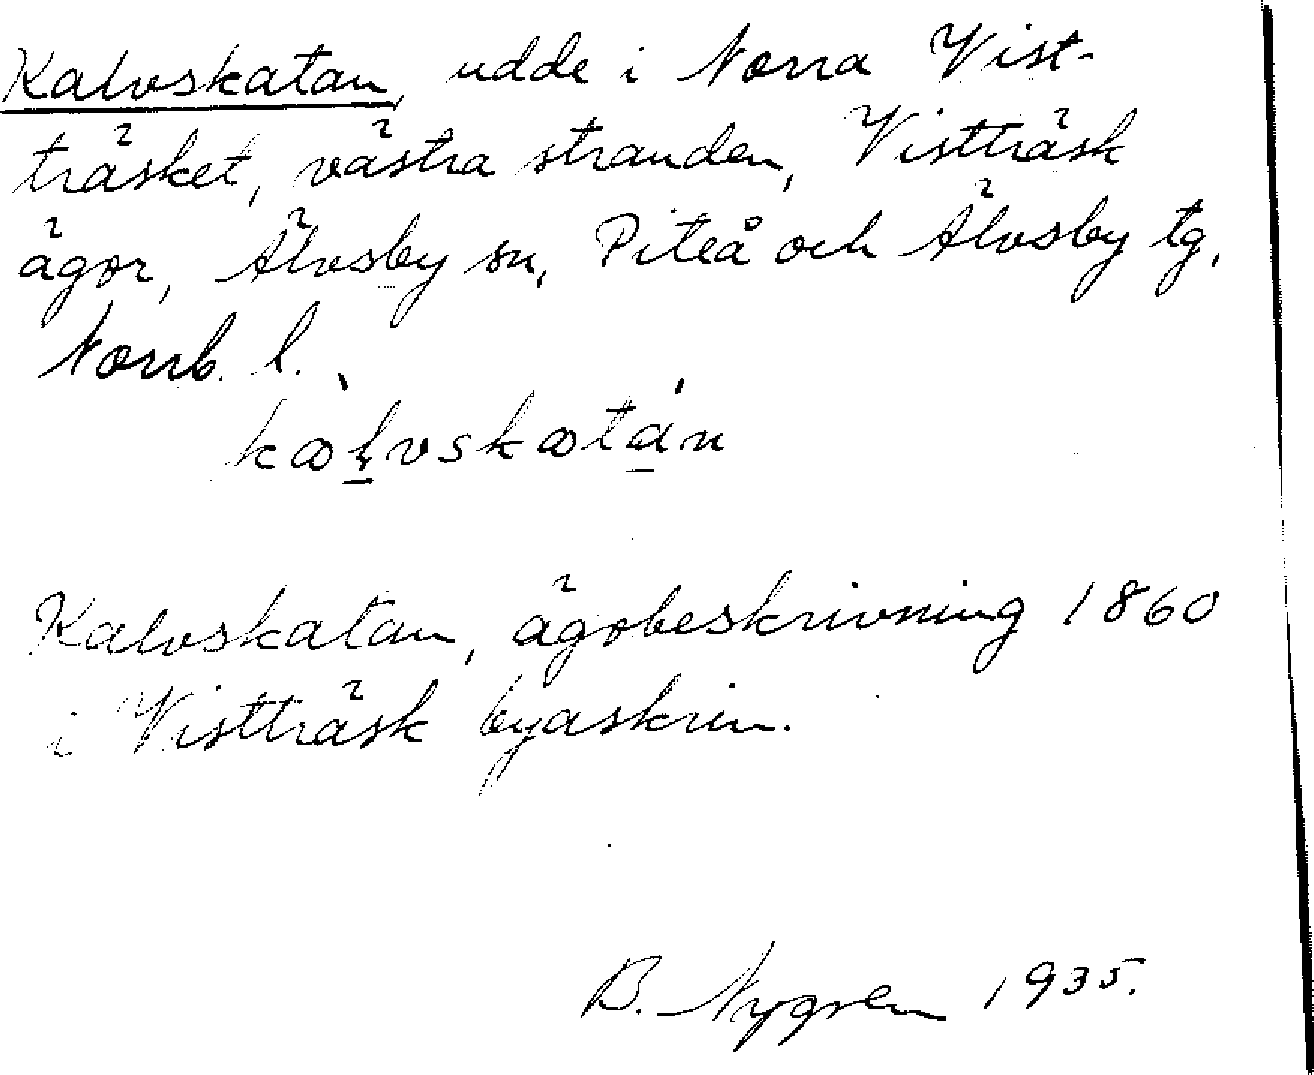 Kalvskatan, udde i Norra Vist-
träsket, västra stranden, Vistträsk
ägor, Älvsby sn, Piteå och Älvsby tg,
Norrb. l.
kalvskatan
Kalvskatan, ägobeskrivning 1860
i Vistträsk byaskrin.
B. Nygren 1935.